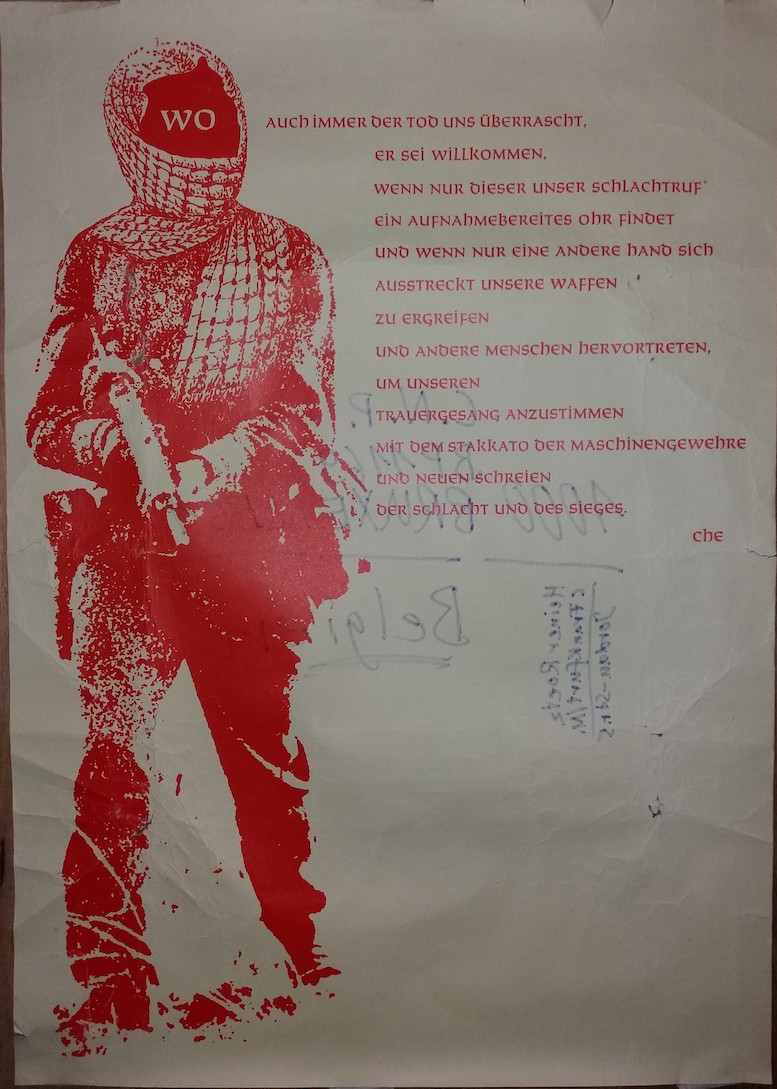 WO AUCH IMMER DER TOD UNS ÜBERRASCHT,
ER SEI WILLKOMMEN,
WENN NUR DIESER UNSER SCHLACHTRUF
EIN AUFNAHMEBEREITES OHR FINDET
UND WENN NUR EINE ANDERE HAND SICH
AUSSTRECKT UNSERE WAFFEN
ZU ERGREIFEN
UND ANDERE MENSCHEN HERVORTRETEN,
UM UNSEREN
TRAUERGESANG ANZUSTIMMEN
MIT DEM STAKKATO DER MASCHINENGEWEHRE
UND NEUEN SCHREIEN
DER SCHLACHT UND DES SIEGES.
che
C.N.P.
1000
Belgien